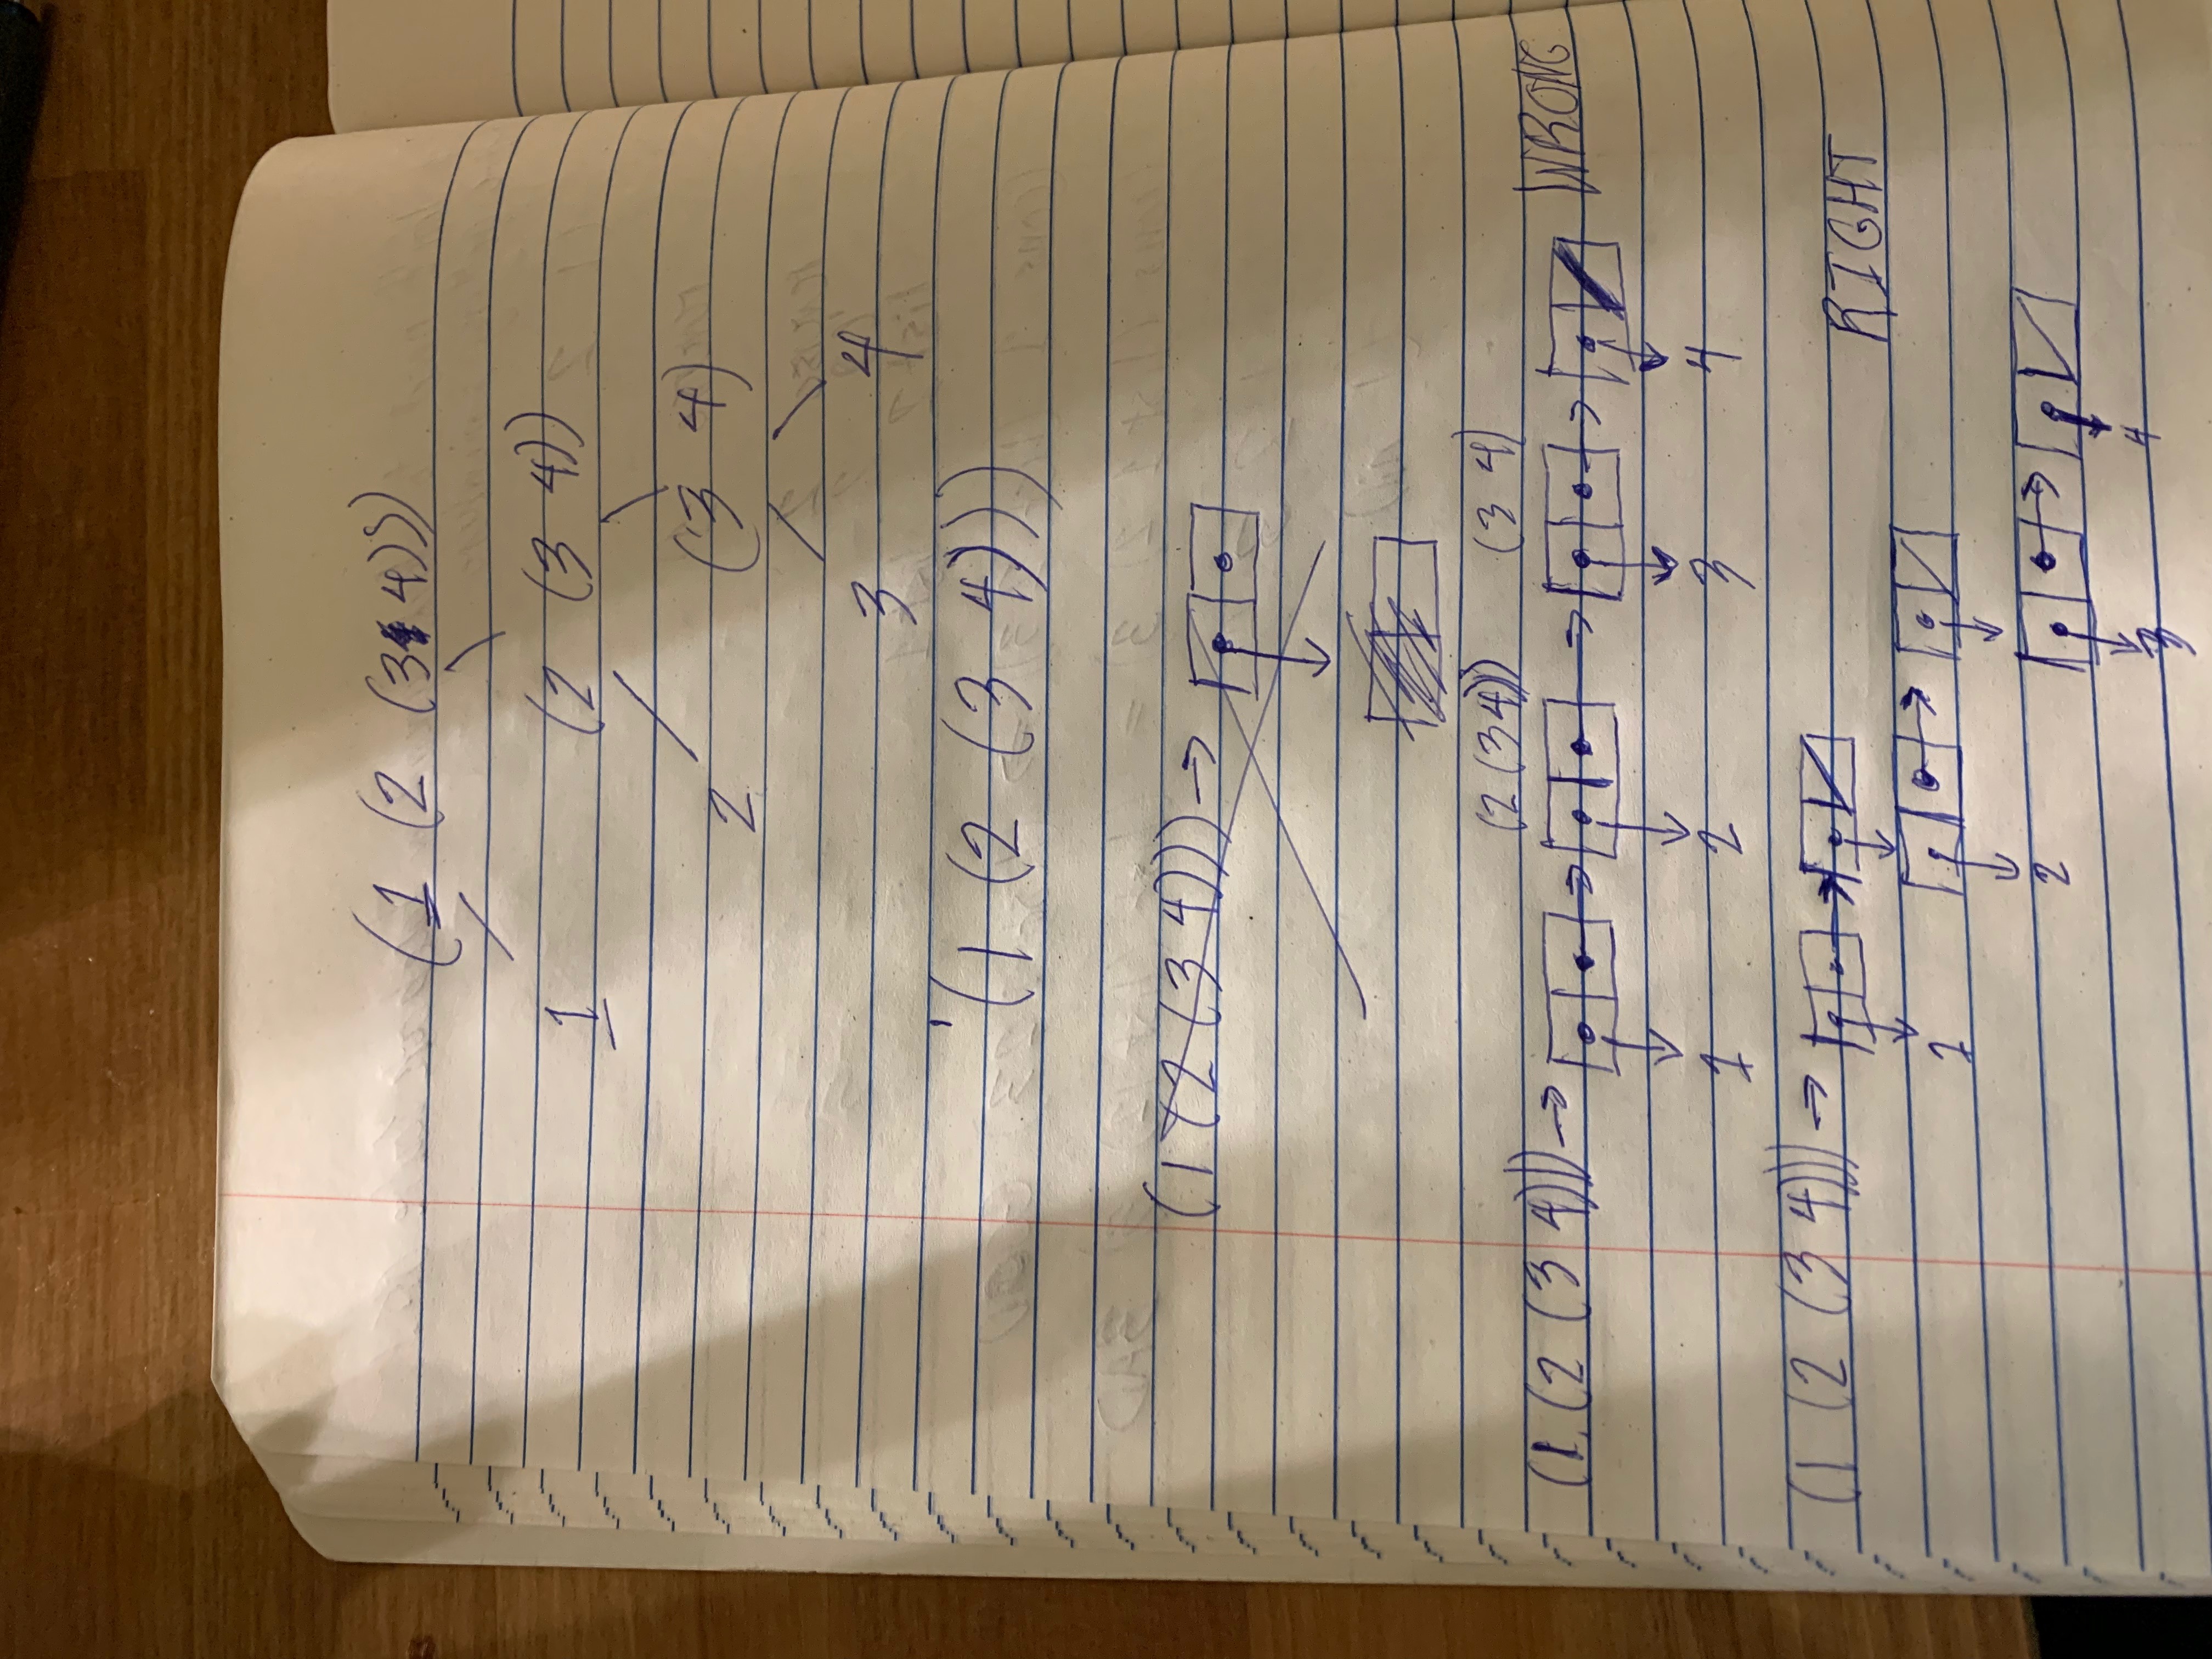 (1 (2 (3 4)))
1 (2 (3 4))
2 (3 4)
3 4
'(1 (2 (3 4)))
(1 (2 (3 4))) →
(2 (3 4))) (3 4)
(1 (2 (3 4))) → WRONG
1 2 3 4
(1 (2 (3 4))) → RIGHT
1
2
3 4